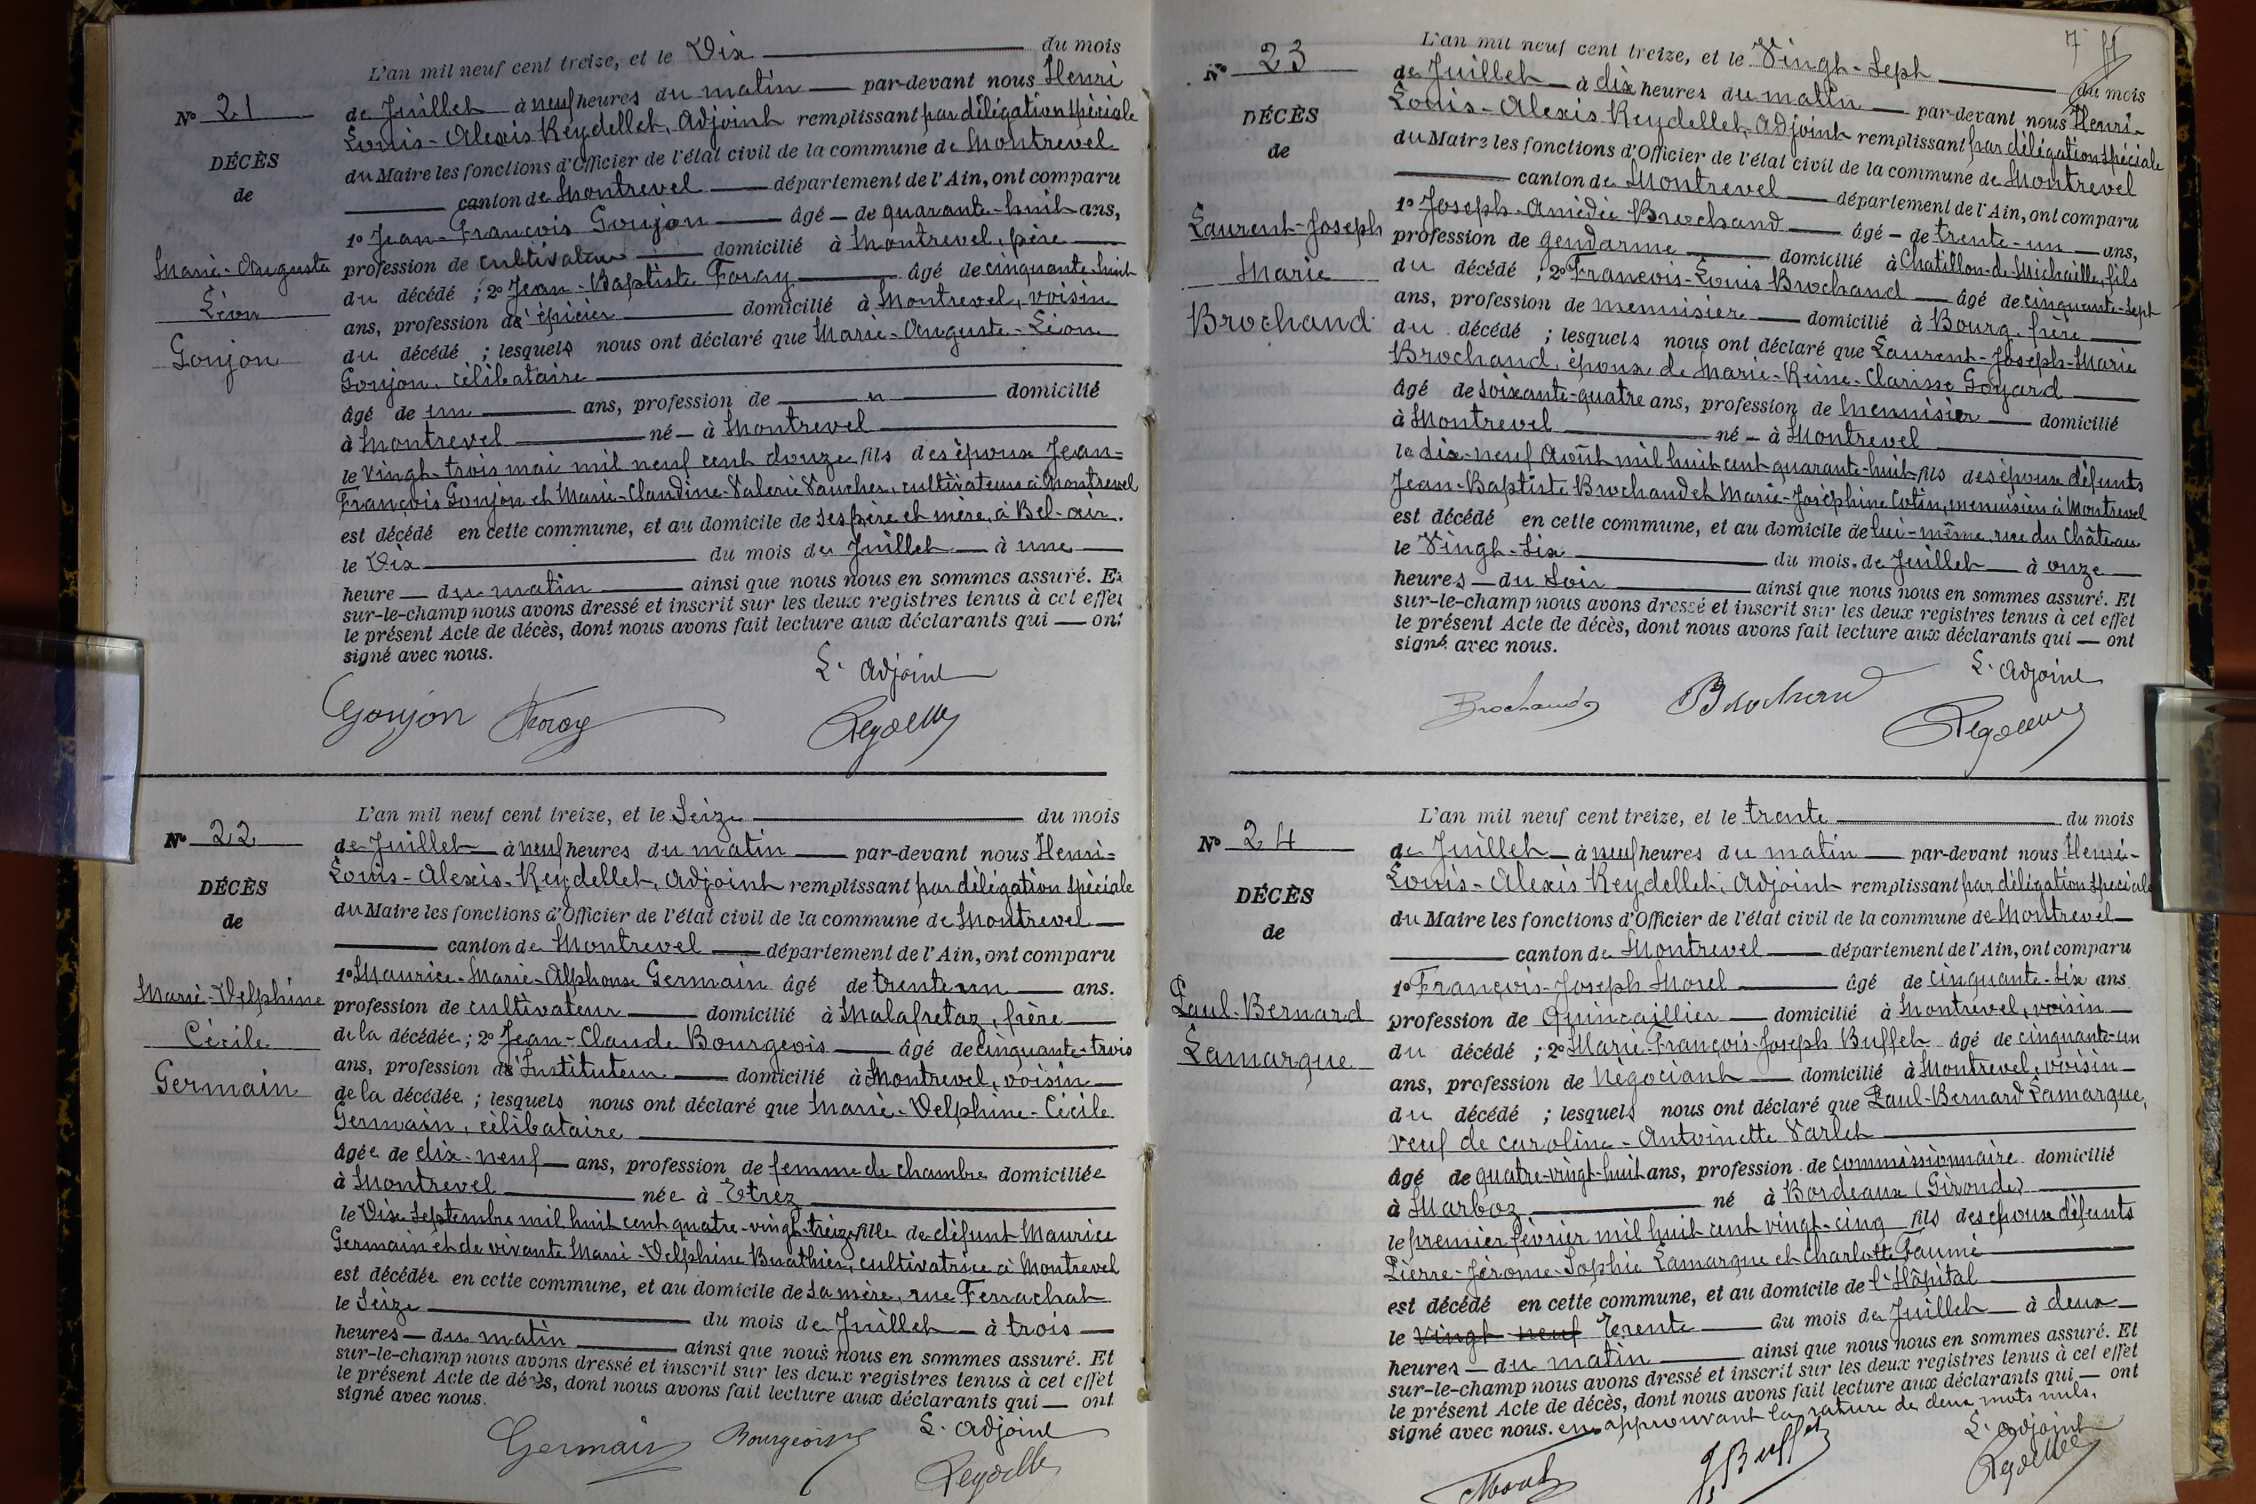 L'an mil neuf cent treize, et le Dix du mois
No 21
de Juillet à neuf heures du matin par-devant nous Henri
Louis-Alexis Reydellet, Adjoint remplissant par délégation spéciale
DÉCÈS
du Maire les fonctions d'Officier de l'état civil de la commune de Montrevel
de
canton de Montrevel département de l'Ain, ont comparu
1o Jean-François Goujon âgé de quarante-huit ans,
Marie-Auguste
profession de cultivateur domicilié à Montrevel, père
du décédé ; 2o Jean-Baptiste Foray âgé de cinquante-huit
Léon
ans, profession d'épicier domicilié à Montrevel, voisin
du décédé ; lesquels nous ont déclaré que Marie-Auguste-Léon
Goujon
Goujon, célibataire
âgé de un ans, profession de domicilié
à Montrevel né à Montrevel
le vingt-trois mai mil neuf cent douze fils des époux Jean-
François Goujon et Marie-Claudine-Valerie Vaucher, cultivateurs à Montrevel
est décédé en cette commune, et au domicile de ses père et mère, à Bel-air.
le Dix du mois de Juillet à une
heure du matin ainsi que nous nous en sommes assuré. Et
sur-le-champ nous avons dressé et inscrit sur les deux registres tenus à cet effet
le présent Acte de décès, dont nous avons fait lecture aux déclarants qui ont
signé avec nous.
L'Adjoint
Goujon Foray Reydellet
L'an mil neuf cent treize, et le Seize du mois
No 22
de Juillet à neuf heures du matin par-devant nous Henri-
Louis-Alexis-Reydellet, Adjoint remplissant par délégation spéciale
DÉCÈS
du Maire les fonctions d'Officier de l'état civil de la commune de Montrevel
de
canton de Montrevel département de l'Ain, ont comparu
1o Maurice-Marie-Alphonse Germain âgé de trente un ans.
Marie-Delphine
profession de cultivateur domicilié à Malafretaz, frère
Cécile
de la décédée ; 2o Jean-Claude Bourgeois âgé de cinquante-trois
ans, profession d'Instituteur domicilié à Montrevel, voisin
Germain
de la décédée ; lesquels nous ont déclaré que Marie-Delphine-Cécile
Germain, célibataire
âgée de dix-neuf ans, profession de femme de chambre domiciliée
à Montrevel née à Etrez
le Dix Septembre mil huit cent quatre-vingt-treize fille de défunt Maurice
Germain et de vivante Marie-Delphine Buathier, cultivatrice à Montrevel
est décédée en cette commune, et au domicile de sa mère, rue Ferrachat
le Seize du mois de Juillet à trois
heures du matin ainsi que nous nous en sommes assuré. Et
sur-le-champ nous avons dressé et inscrit sur les deux registres tenus à cet effet
le présent Acte de décès, dont nous avons fait lecture aux déclarants qui ont
signé avec nous.
L'Adjoint
Germain Bourgeois Reydellet
7
L'an mil neuf cent treize, et le Vingt-Sept du mois
No 23
de Juillet à dix heures du matin par-devant nous Henri-
Louis-Alexis Reydellet, Adjoint remplissant par délégation spéciale
DÉCÈS
du Maire les fonctions d'Officier de l'état civil de la commune de Montrevel
de
canton de Montrevel département de l'Ain, ont comparu
1o Joseph-Amédée Brochand âgé de trente-un ans,
Laurent-Joseph
profession de gendarme domicilié à Chatillon-de-Michaille, fils
Marie
du décédé ; 2o François-Louis Brochand âgé de cinquante-sept
ans, profession de menuisier domicilié à Bourg, frère
Brochand
du décédé ; lesquels nous ont déclaré que Laurent-Joseph-Marie
Brochand, époux de Marie-Reine-Clarisse Goyard
âgé de soixante-quatre ans, profession de menuisier domicilié
à Montrevel né à Montrevel
le dix-neuf Août mil huit cent quarante-huit fils des époux défunts
Jean-Baptiste Brochand et Marie-Joséphine Cotin, menuisier à Montrevel
est décédé en cette commune, et au domicile de lui-même, rue du Château
le Vingt-Six du mois de Juillet à onze
heures du soir ainsi que nous nous en sommes assuré. Et
sur-le-champ nous avons dressé et inscrit sur les deux registres tenus à cet effet
le présent Acte de décès, dont nous avons fait lecture aux déclarants qui ont
signé avec nous.
L'Adjoint
Brochand Brochand Reydellet
L'an mil neuf cent treize, et le trente du mois
No 24
de Juillet à neuf heures du matin par-devant nous Henri-
Louis-Alexis Reydellet, Adjoint remplissant par délégation spéciale
DÉCÈS
du Maire les fonctions d'Officier de l'état civil de la commune de Montrevel
de
canton de Montrevel département de l'Ain, ont comparu
1o François-Joseph Morel âgé de cinquante-six ans
Paul-Bernard
profession de Quincaillier domicilié à Montrevel, voisin
Lamarque
du décédé ; 2o Marie-François-Joseph Buffet âgé de cinquante-un
ans, profession de Négociant domicilié à Montrevel, voisin
du décédé ; lesquels nous ont déclaré que Paul-Bernard Lamarque,
veuf de caroline-Antoinette Varlet
âgé de quatre-vingt-huit ans, profession de commissionnaire domicilié
à Marboz né à Bordeaux (Gironde)
le premier février mil huit cent vingt-cinq fils des époux défunts
Pierre-Jérome-Sophie Lamarque et Charlotte Faumé
est décédé en cette commune, et au domicile de l'Hôpital
le vingt neuf Trente du mois de Juillet à deux
heures du matin ainsi que nous nous en sommes assuré. Et
sur-le-champ nous avons dressé et inscrit sur les deux registres tenus à cet effet
le présent Acte de décès, dont nous avons fait lecture aux déclarants qui ont
signé avec nous. en approuvant la rature de deux mots nuls.
L'adjoint
Morel J Buffet Reydellet